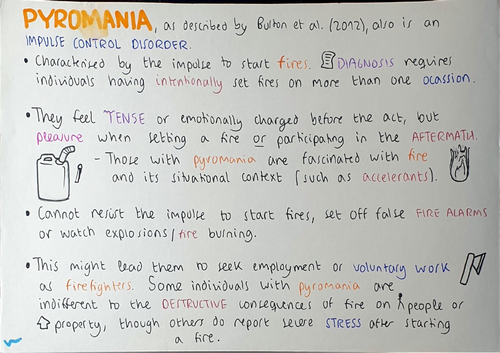 PYROMANIA, as described by Burton et al. (2012), also is an
IMPULSE CONTROL DISORDER.
• Characterised by the impulse to start fires. DIAGNOSIS requires
individuals having intentionally set fires on more than one ocassion.
• They feel TENSE or emotionally charged before the act, but
pleasure when setting a fire or participating in the AFTERMATH.
- Those with pyromania are fascinated with fire
and its situational context (such as accelerants).
• Cannot resist the impulse to start fires, set off false FIRE ALARMS
or watch explosions/fire burning.
• This might lead them to seek employment or voluntary work
as firefighters. Some individuals with pyromania are
indifferent to the DESTRUCTIVE consequences of fire on people or
property, though others do report severe STRESS after starting
a fire.